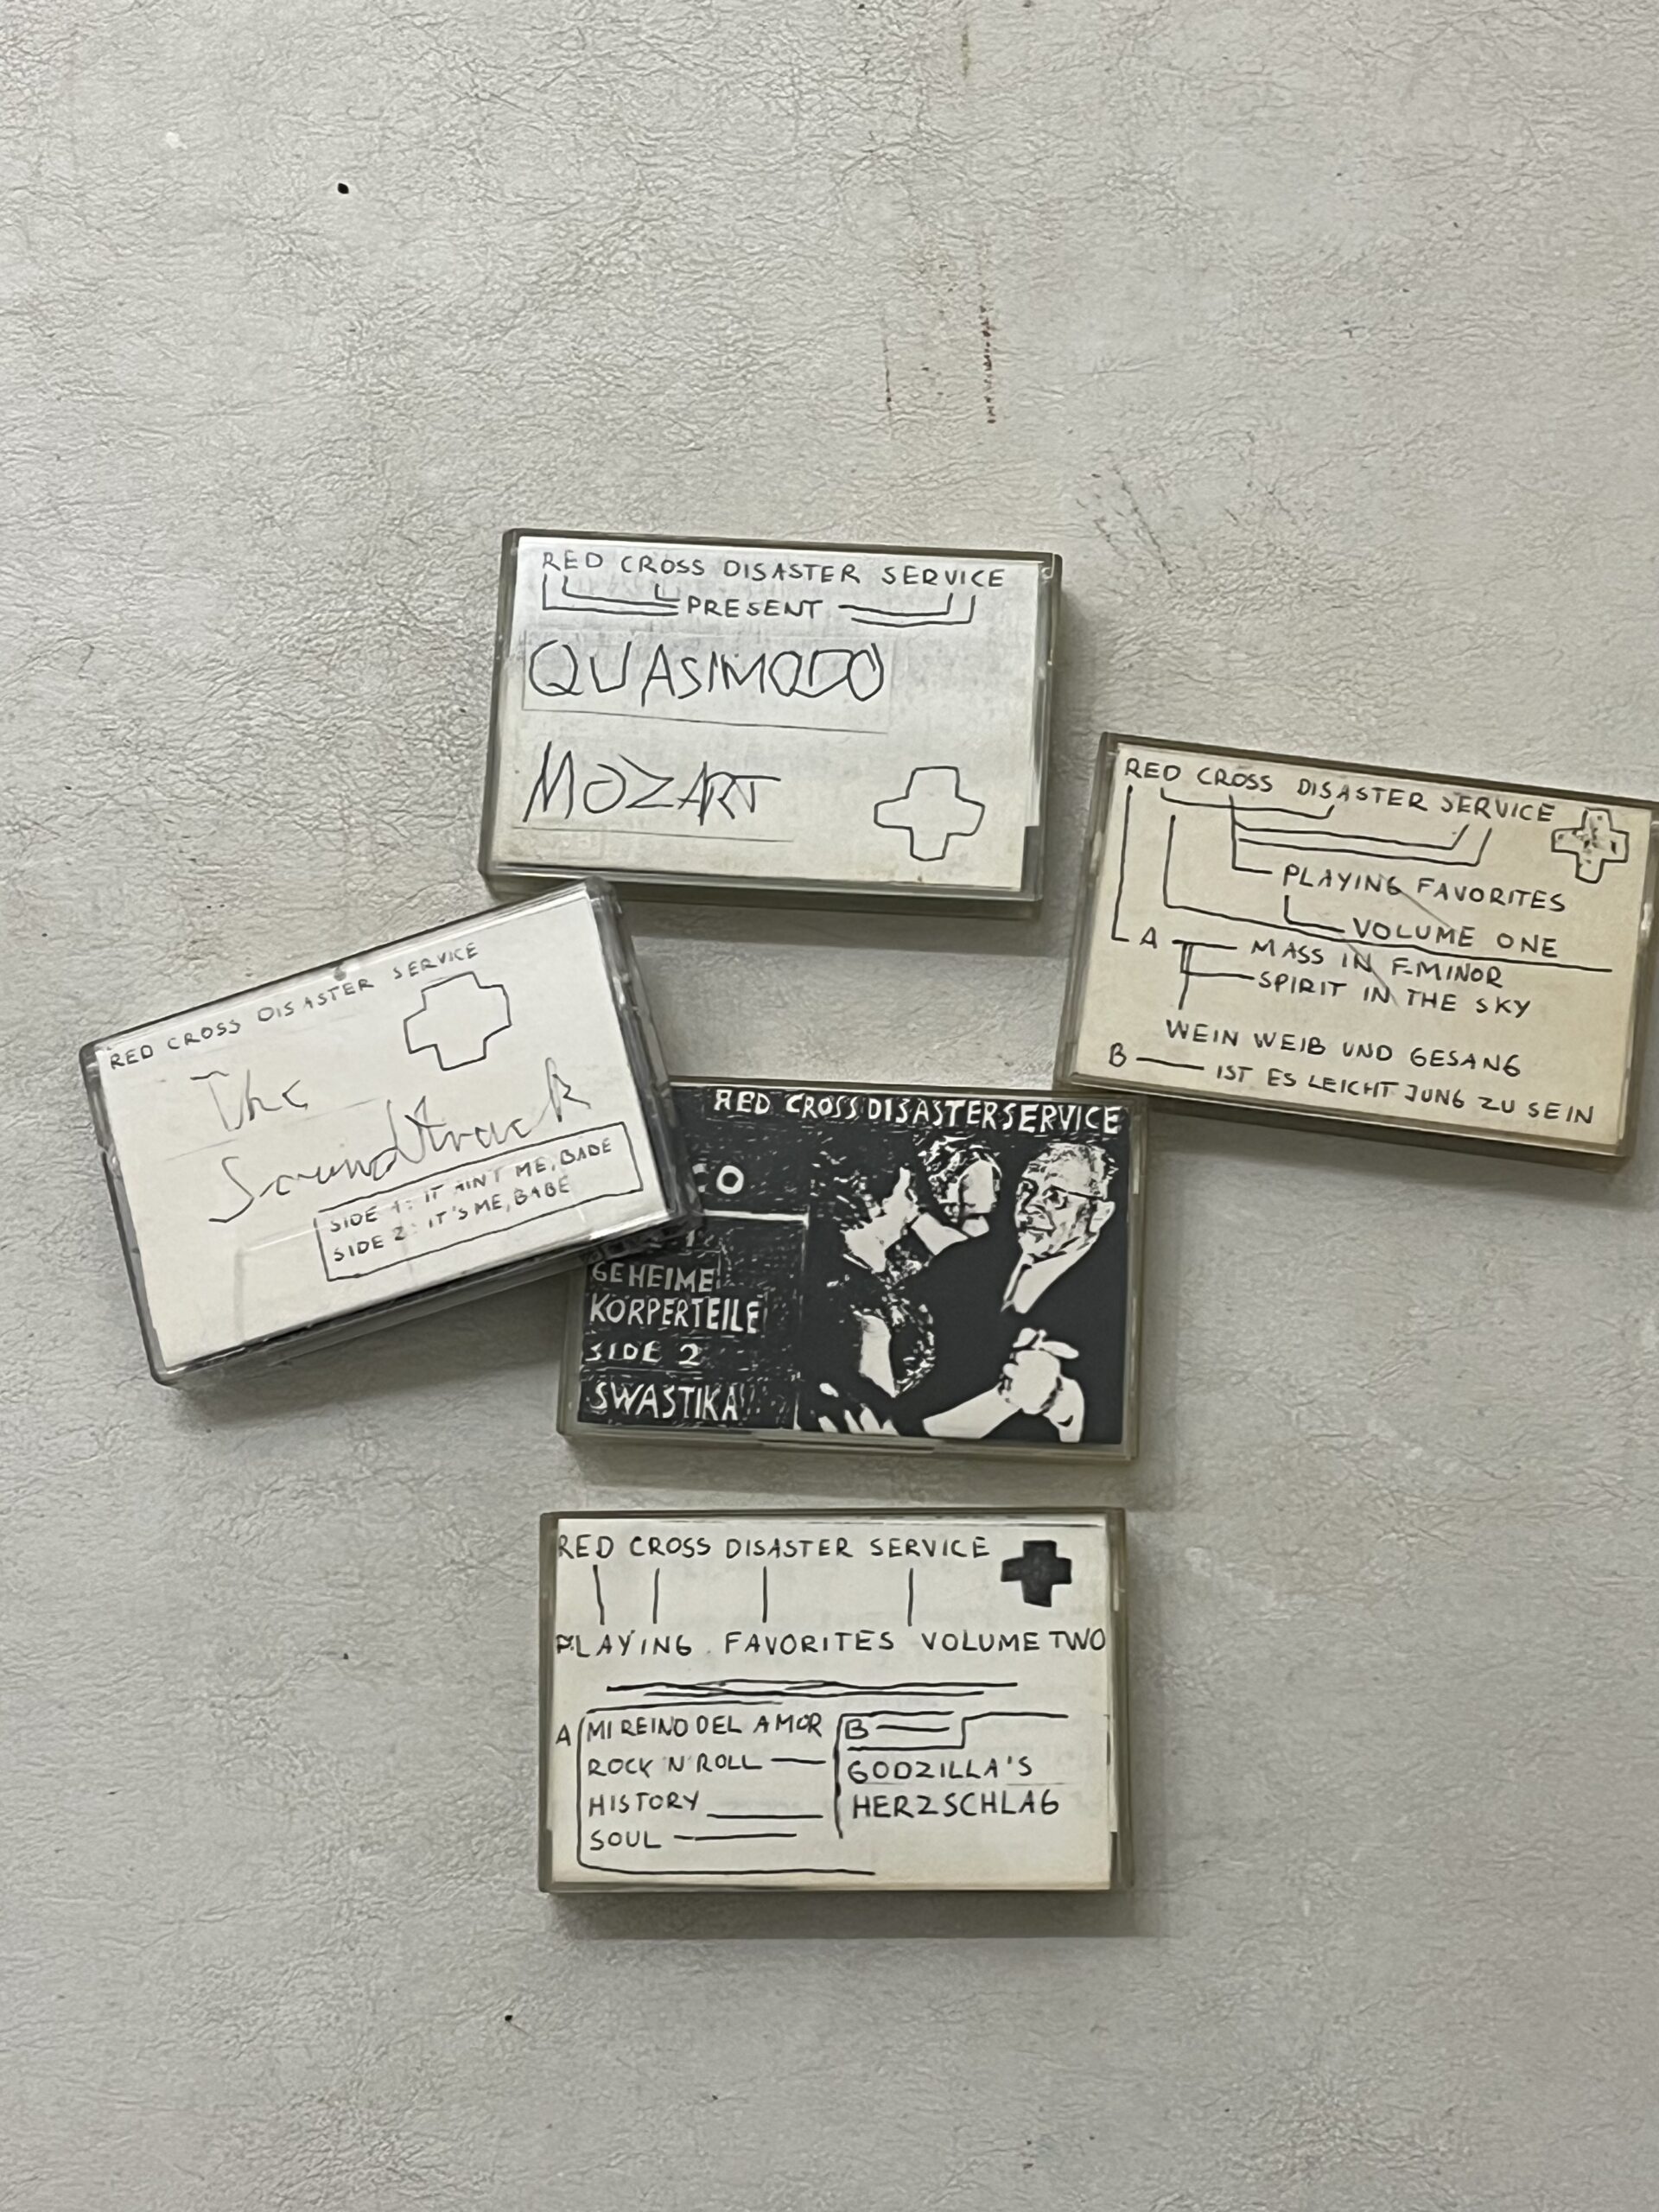 RED CROSS DISASTER SERVICE
PRESENT
QUASIMODO
MOZART
RED CROSS DISASTER SERVICE
PLAYING FAVORITES
VOLUME ONE
A MASS IN F-MINOR
SPIRIT IN THE SKY
WEIN WEIB UND GESANG
B IST ES LEICHT JUNG ZU SEIN
RED CROSS DISASTER SERVICE
The
Soundtrack
SIDE 1: IT AIN'T ME, BABE
SIDE 2: IT'S ME, BABE
RED CROSS DISASTER SERVICE
CO
GEHEIME
KÖRPERTEILE
SIDE 2
SWASTIKA!!
RED CROSS DISASTER SERVICE
PLAYING FAVORITES VOLUME TWO
A MI REINO DEL AMOR
ROCK'N'ROLL
HISTORY
SOUL
B
GODZILLA'S
HERZSCHLAG